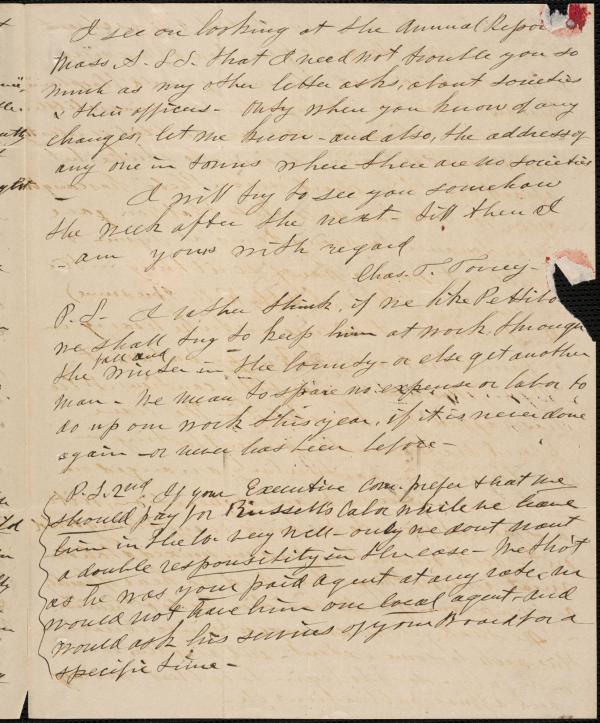 I see on looking at the Annual Repor
Mass A. S. S. that I need not trouble you so
much as my other letter asks, about societies
& their officers - Only when you know of any
changes, let me know - and also, the address of
any one in towns where there are no societies
- I will try to see you somehow
the week after the next - till then I
- am yours with regard
Chas. T. Torrey -
P.S. I rather think, if we like Pettibo
we shall try to keep him at work through
fall and
the winter in the County - or else get another
man - We mean to spare no expense or labor to
do up our work this year, if it is never done
again - or never has been before -
P.S. 2nd. If your Executive Com. prefer that we
should pay for Russell's labor while we have
him in the Co. very well - only we dont want
a double responsibility in the case - We tho't
as he was your paid agent at any rate, we
would not have him our local agent, and
would ask his services of your Board for a
specific time -